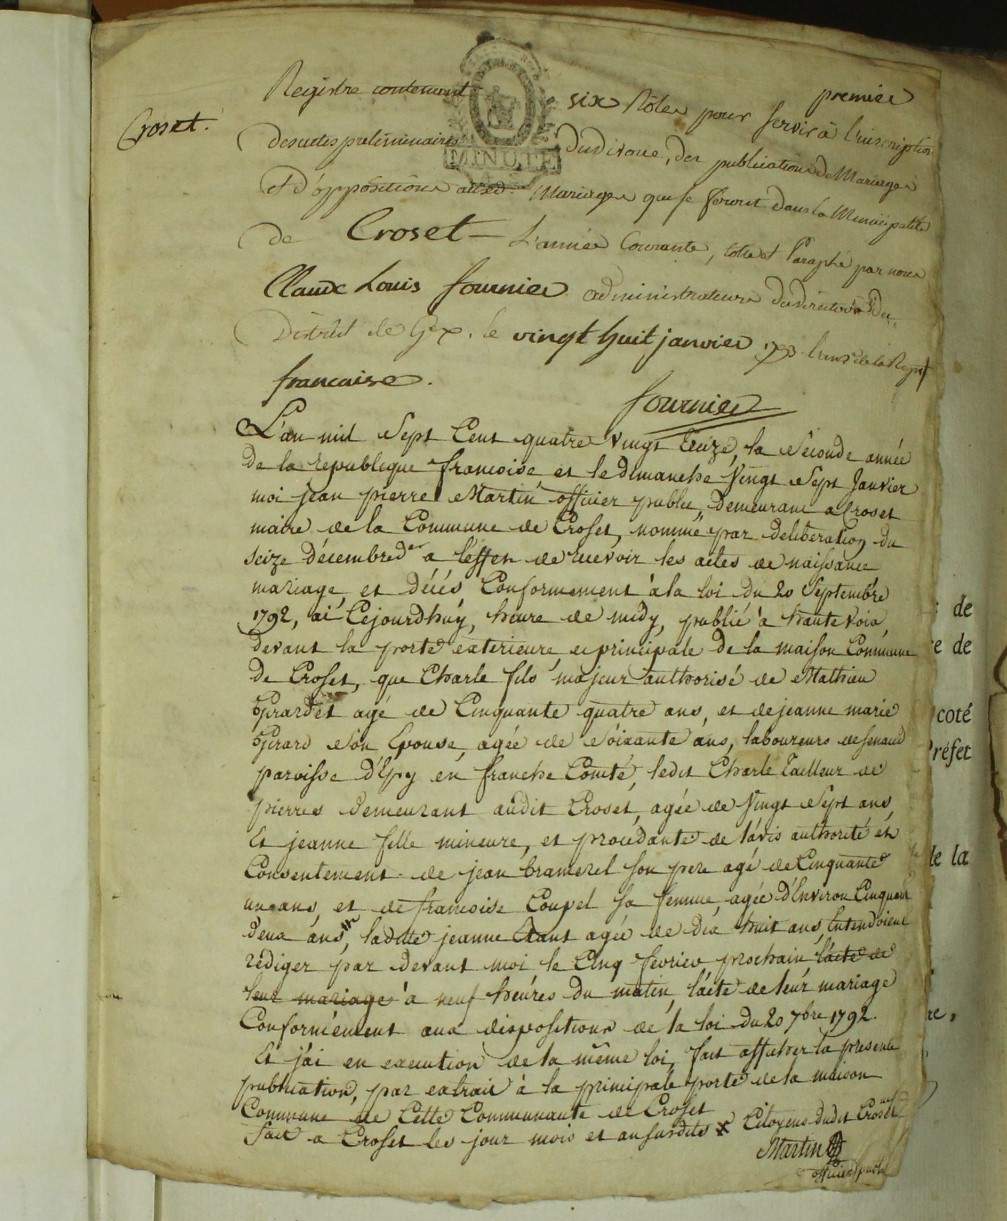 premier
Croset.
Registre contenant six Rôles pour servir à l'inscription
des actes preliminaires du divorce, des publications de Mariages
Et d'oppositions auxd. Mariages qui se feront dans la Municipalité
de Croset L'année Courante, cotté et Paraphé par nous
Claude Louis fournier administrateur du directoire du
District de Gex. le vingt huit janvier 1793 l'an 2 de la Rep.
francaise.
fournier
MINUTE
L'an mil Sept Cent quatre vingt treize, la Seconde année
de la republique francoise, et le dimanche Vingt Sept Janvier
moi jean pierre Martin officier public, Demeurant a Croset
maire de la Commune de Croset, nommé par deliberation du
seize décembre der a l'effet de recevoir les actes de naissance
mariage et décés Conformement à la loi du 20 Septembre
1792, ai Cejourdhuy, heure de midy, publié à haute voix,
devant la porte exterieure et principale de la maison Commune
De Croset, que Charle fils majeur authorisé de Mathieu
Girardet agé de Cinquante quatre ans, et de jeanne marie
Girard son Epouse, agée de Soixante ans, laboureurs de
paroisse d'Epy en franche Comté, ledit Charle Tailleur de
pierres demeurant audit Croset, agée de Vingt Sept ans,
Et jeanne fille mineure, et procedante de l'avis authorité et
Consentement de jean son pere agé de Cinquante
un ans, et de francoise Coupel sa femme, agée d'Environ Cinquante
deux ans, ladite jeanne Etant agée de dix huit ans, Entendoient
rédiger par devant moi le Cinq fevrier prochain l'acte de
leur mariage à neuf heures du matin, l'acte de leur mariage
Conformément aux dispositions de la loi du 20 7bre 1792.
Et j'ai en execution de la même loi, fait afficher la presente
publication, par extrait à la principale porte de la maison
Commune de Cette Communauté de Croset
fait a Croset les jour mois et an susdits x Citoyens dudit Croset
Martin
officier public
de
e de
coté
Préfet
de la